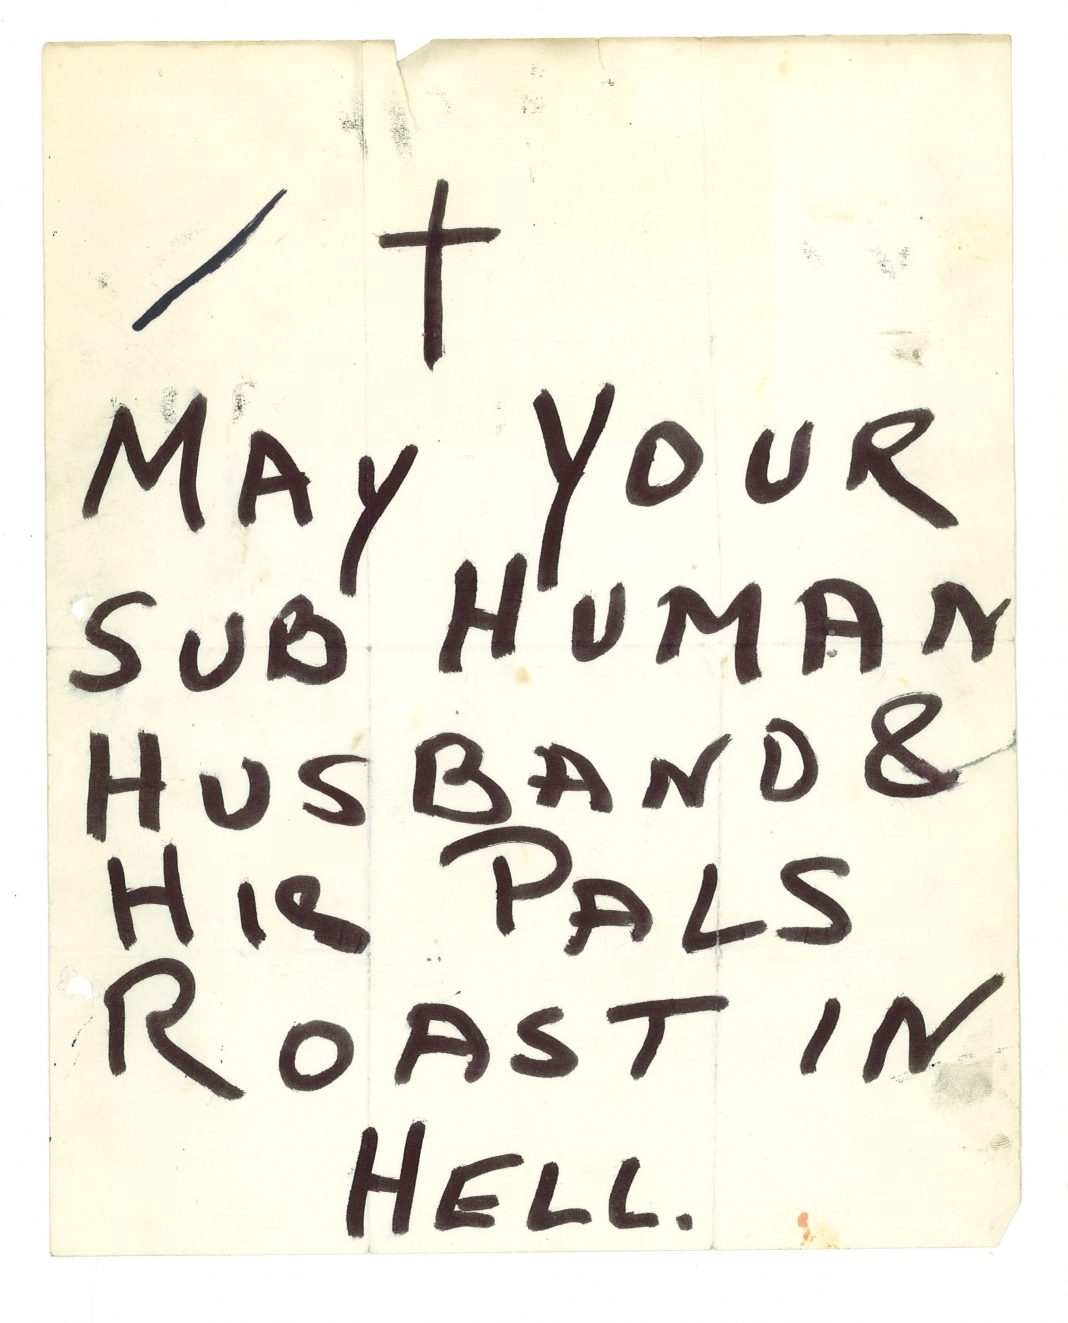 MAY YOUR
SUB HUMAN
HUSBAND &
HIS PALS
ROAST IN
HELL.